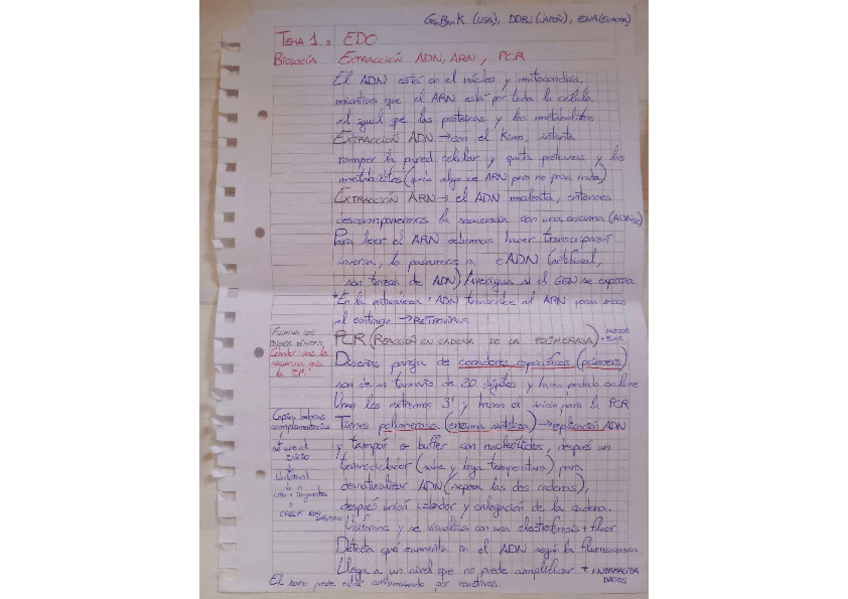 GenBank (USA), DDBJ (JAPÓN), ENA (EUROPA)
TEMA 1.: EDO
BIOLOGÍA EXTRACCIÓN ADN, ARN, PCR
El ADN está en el núcleo y mitocondria,
mientras que el ARN está por toda la célula
al igual que las proteínas y los metabolitos
EXTRACCIÓN ADN → con el Kim, intenta
romper la pared celular y quita proteínas y los
metabolitos (quita algo de ARN pero no pasa nada)
EXTRACCIÓN ARN → el ADN molesta, entonces
descomponemos la secuencia con una enzima
Para leer el ARN debemos hacer transcripción
inversa, lo pasamos a cADN (artificial,
son trozos de ADN) Averigua si el GEN se expresa
*En la naturaleza: ADN transcribe al ARN pocas veces
al contrario → RETROVIRUS
PCR (REACCIÓN EN CADENA DE LA POLIMERASA)
Diseñas pareja de cebadores específicos (primers)
son de un tamaño de 20 dígitos y haces pedido online
Unes los extremos 3' y hacen de inicio para la PCR
Tienes polimerasa (enzima sintetiza) → replicación ADN
y tampón o buffer con nucleótidos, después un
termociclador (sube y baja temperatura) para
desnaturalizar ADN (separa las dos cadenas),
después unión cebador y elongación de la cadena.
y se visualiza con una electroforesis + fluor
Detecta que aumenta en el ADN según la fluorescencia
Llega a un nivel que no puede amplificar + NORMALIZA
DATOS
El suero puede estar contaminado por reactivos.
la
secuencia para
la
Copia hebras
complementarias
↓
↓
↓
+ fragmentos
↓